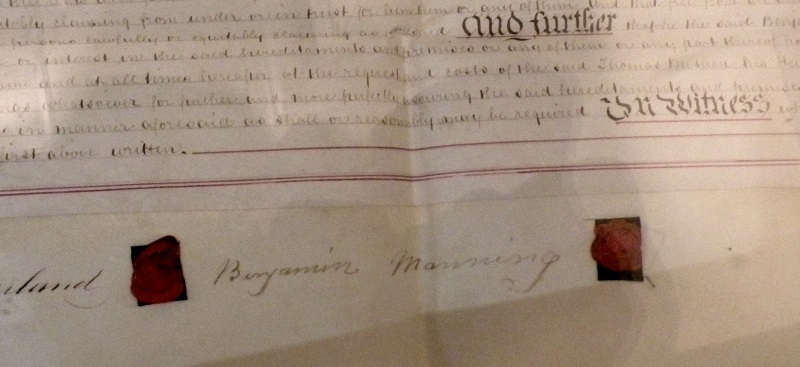 claiming from under or in trust for him them or any of them And that free from
persons lawfully or equitably claiming as aforesaid And further that he the said Benj
or interest in the said hereditaments and premises or any of them or any part thereof
and at all times hereafter at the request and costs of the said Thomas his
whatsoever for further and more perfectly assuring the said hereditaments and premises
in manner aforesaid as shall or reasonably may be required In Witness
first above written.
land Benjamin Manning